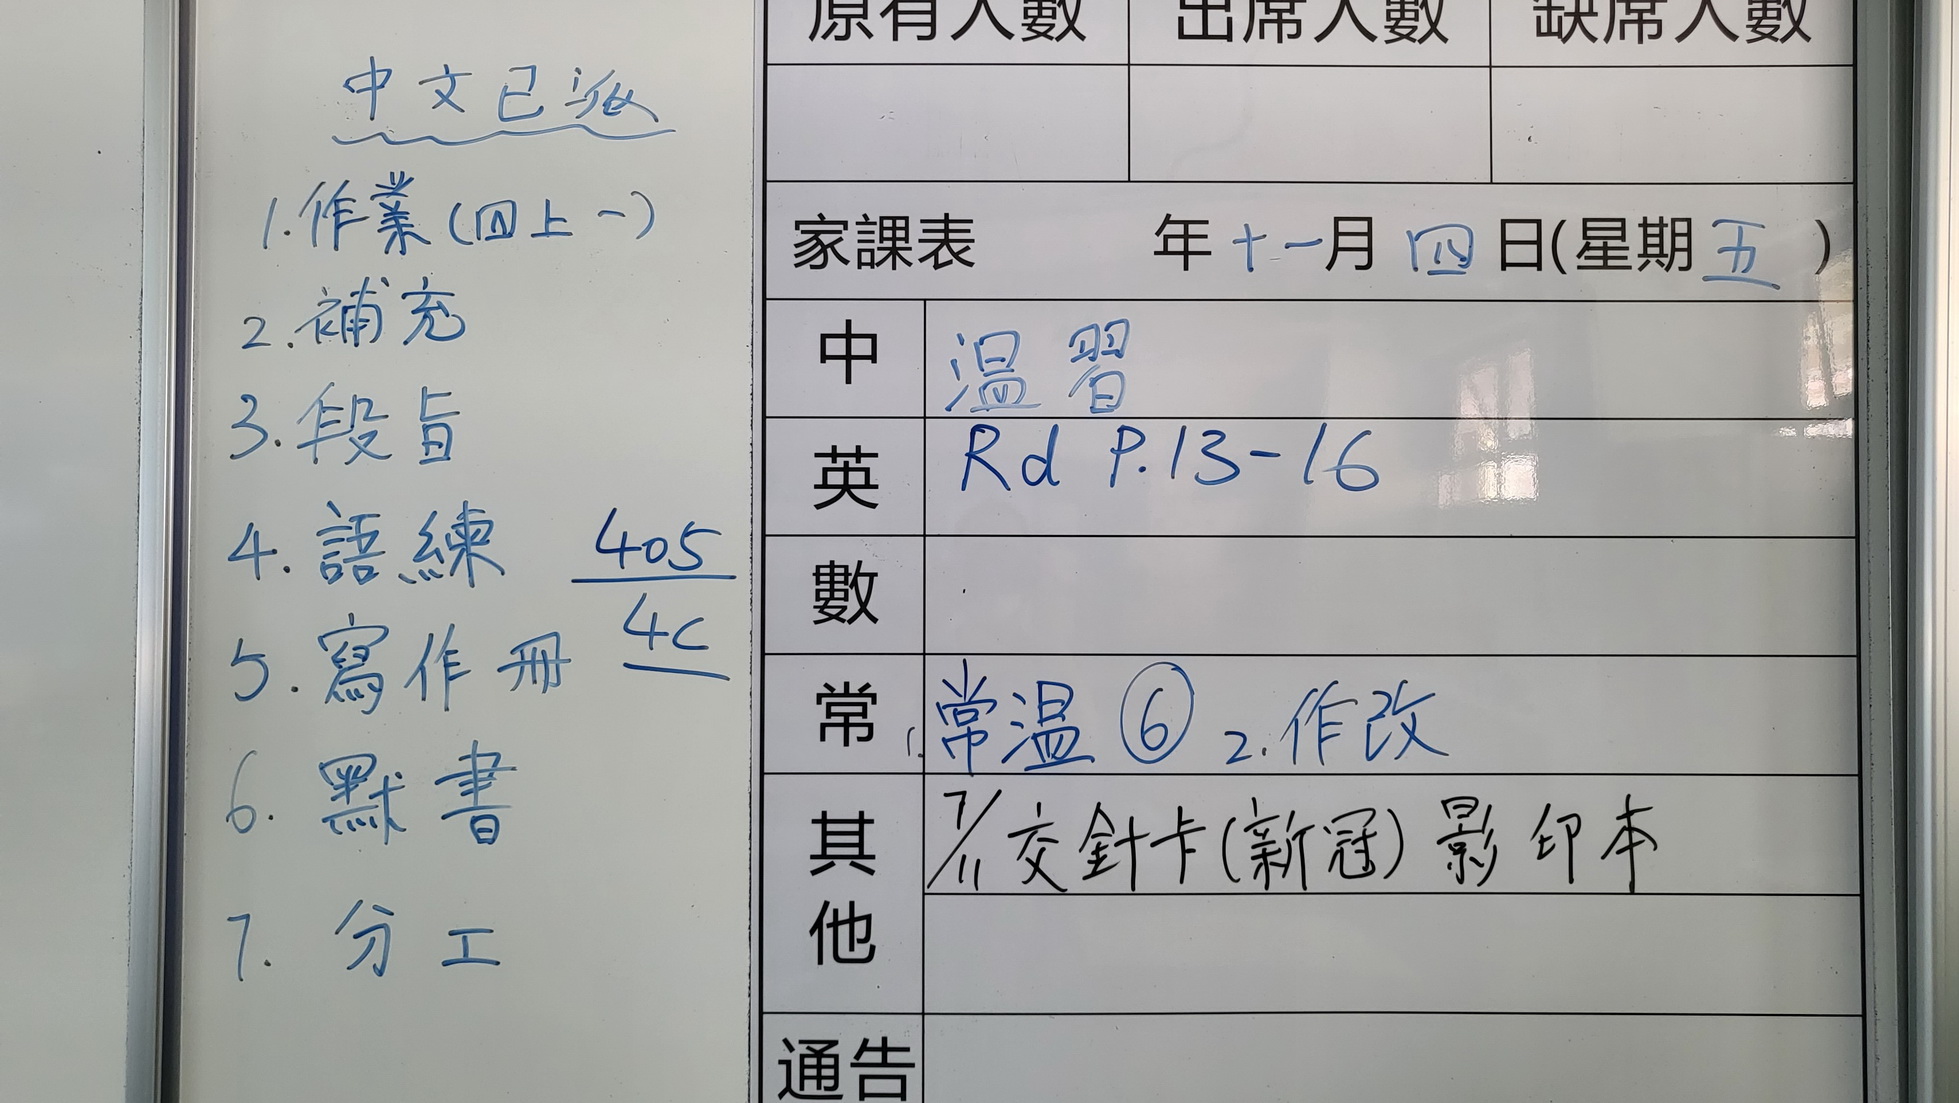 中文已派
1.作業(四上一)
2.補充
3.段旨
4.語練
405
4C
5.寫作冊
6.默書
7.分工
原有人數 出席人數 缺席人數
家課表 年十一月四日(星期五)
中 温習
英 Rd P.13-16
數
常 1.常温⑥ 2.作改
其他 7/11交針卡(新冠)影印本
通告